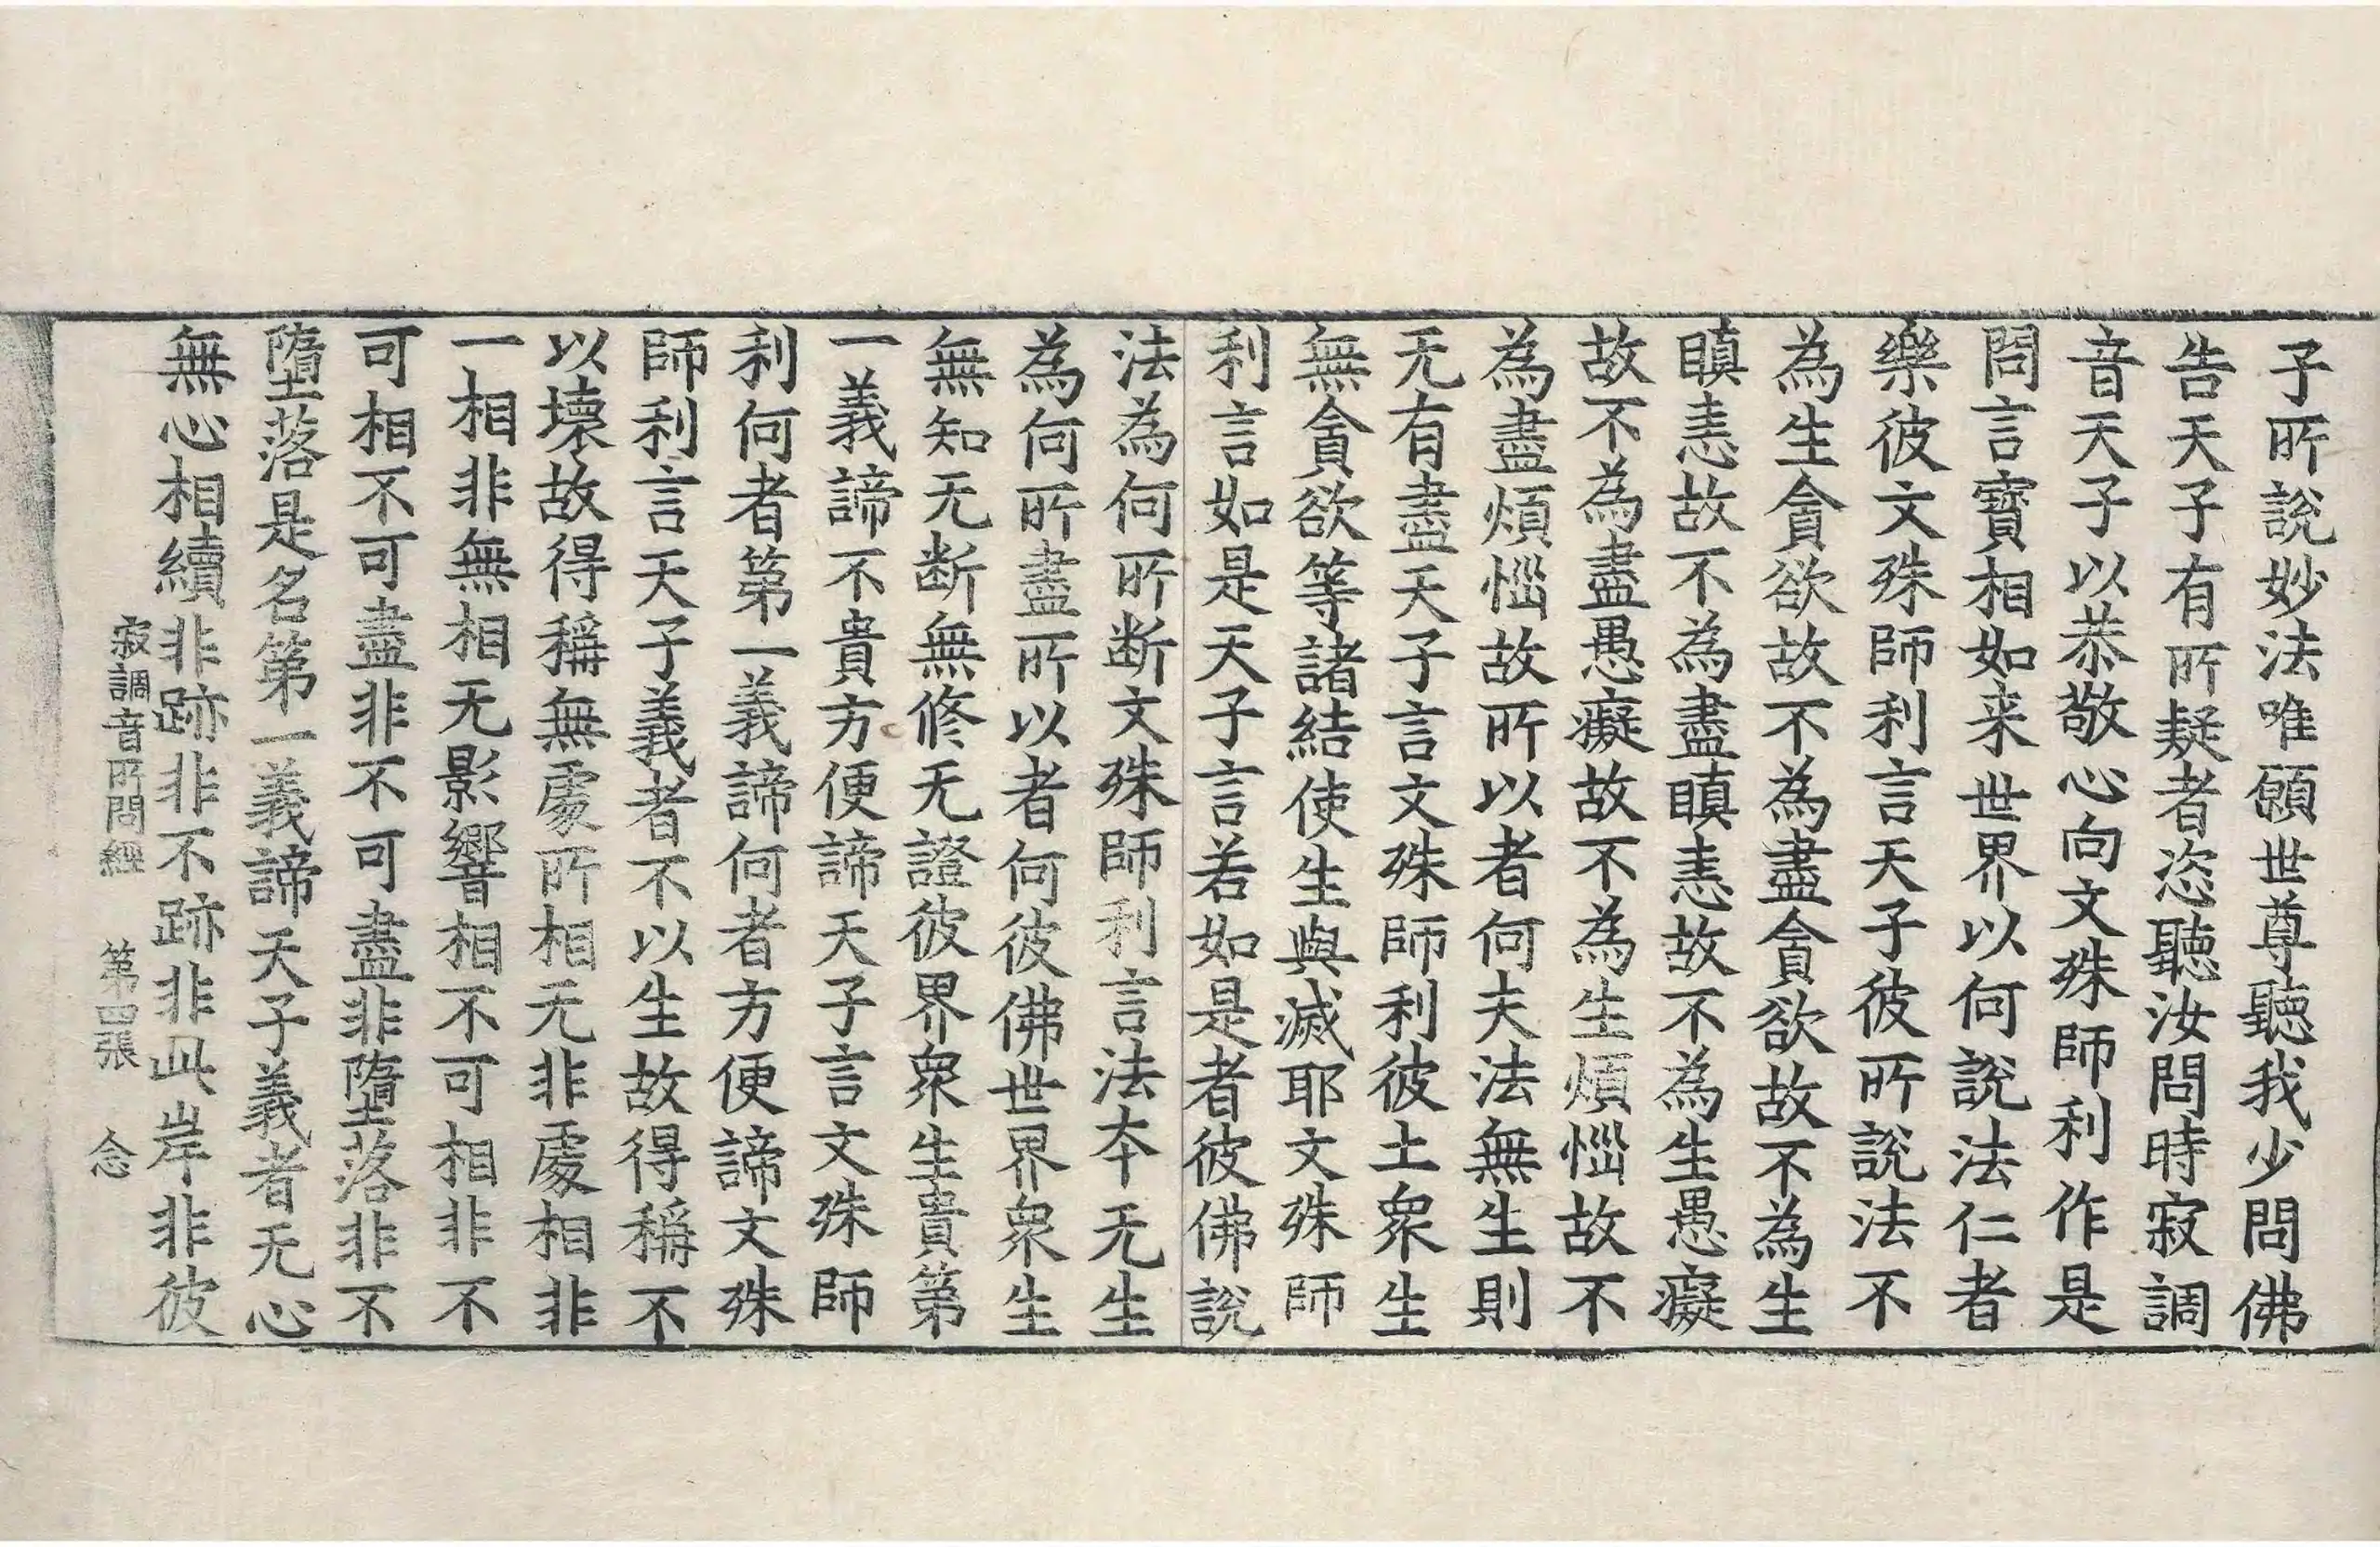 子所說妙法唯願世尊聽我少問佛
告天子有所疑者恣聽汝問時寂調
音天子以恭敬心向文殊師利作是
問言寶相如来世界以何說法仁者
樂彼文殊師利言天子彼所說法不
為生貪欲故不為盡貪欲故不為生
瞋恚故不為盡瞋恚故不為生愚癡
故不為盡愚癡故不為生煩惱故不
為盡煩惱故所以者何夫法無生則
无有盡天子言文殊師利彼土衆生
無貪欲等諸結使生與滅耶文殊師
利言如是天子言若如是者彼佛說
法為何所断文殊師利言法本无生
為何所盡所以者何彼佛世界衆生
無知无断無修无證彼界衆生貴第
一義諦不貴方便諦天子言文殊師
利何者第一義諦何者方便諦文殊
師利言天子義者不以生故得稱不
以壞故得稱無處所相无非處相非
一相非無相无影響相不可相非不
可相不可盡非不可盡非墮落非不
墮落是名第一義諦天子義者无心
無心相續非跡非不跡非此岸非彼
寂調音所問經　第四張　念